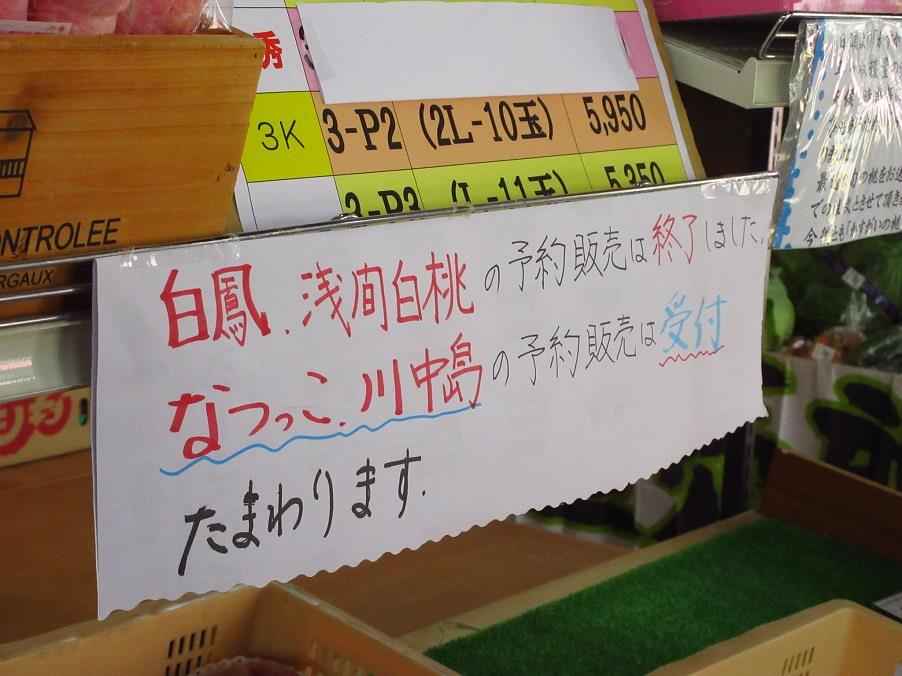 秀
3K 3-P2 (2L-10玉) 5,950
2-P3 (L-11玉) 5,350
ONTROLEE
RGAUX
白鳳、浅間白桃の予約販売は終了しました。
なつっこ、川中島の予約販売は受付
たまわります。